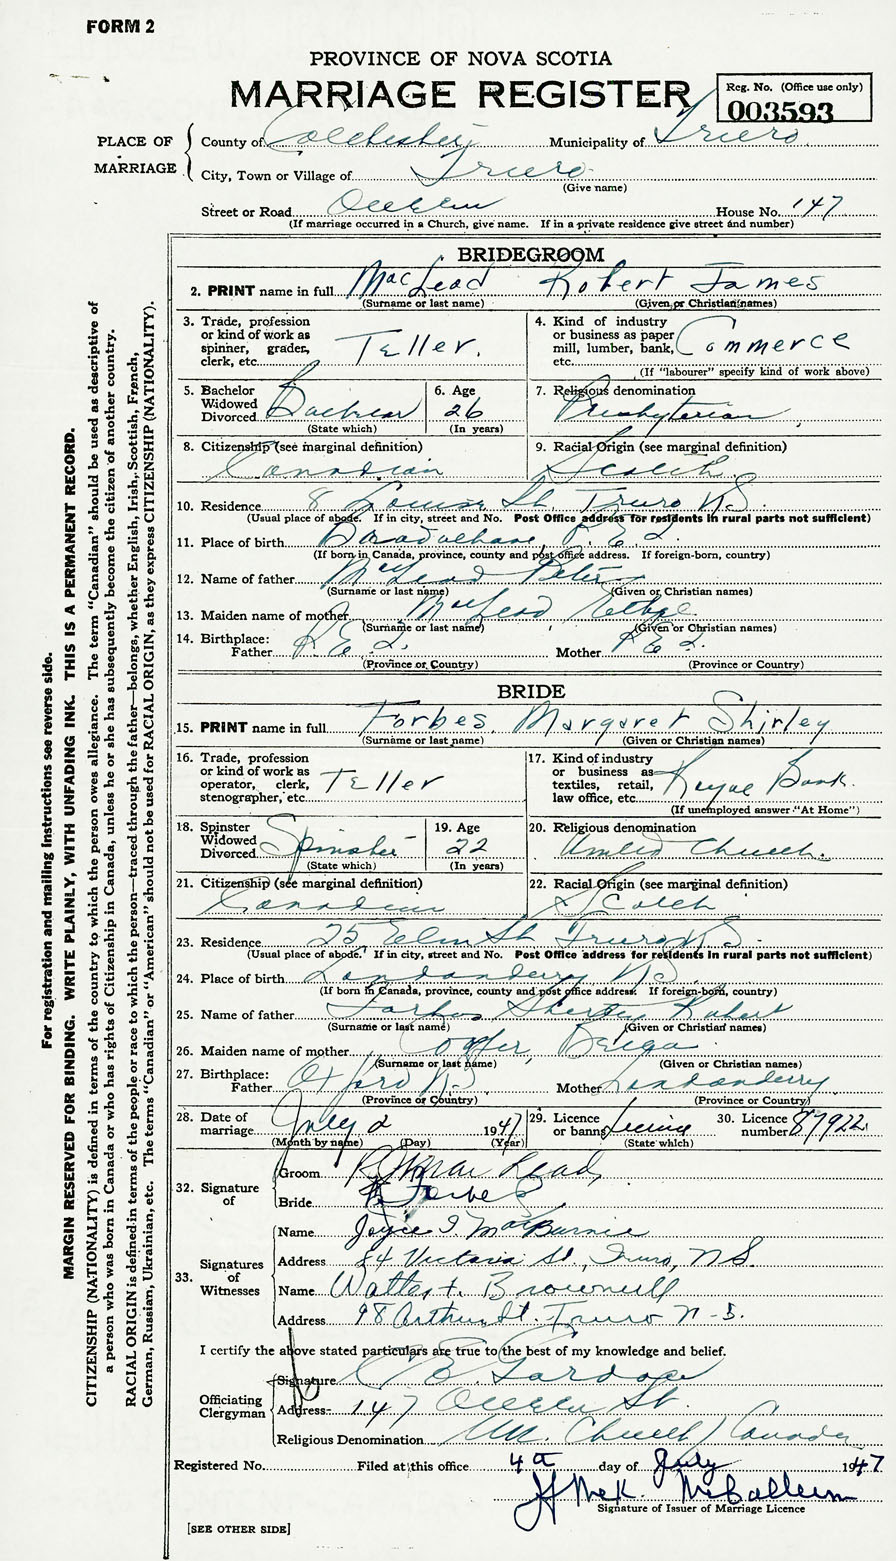 FORM 2
PROVINCE OF NOVA SCOTIA
MARRIAGE REGISTER
Reg. No. (Office use only)
003593
PLACE OF MARRIAGE
County of Colchester Municipality of Truro
City, Town or Village of Truro
(Give name)
Street or Road Queen House No. 147
(If marriage occurred in a Church, give name. If in a private residence give street and number)
BRIDEGROOM
2. PRINT name in full MacLeod Robert James
(Surname or last name) (Given or Christian names)
3. Trade, profession or kind of work as spinner, grader, clerk, etc. Teller.
4. Kind of industry or business as paper mill, lumber, bank, etc. Commerce
(If "labourer" specify kind of work above)
5. Bachelor Widowed Divorced Bachelor
(State which)
6. Age 26
(In years)
7. Religious denomination
Presbyterian
8. Citizenship (see marginal definition)
Canadian
9. Racial Origin (see marginal definition)
Scotch
10. Residence 8 Louise St. Truro N.S.
(Usual place of abode. If in city, street and No. Post Office address for residents in rural parts not sufficient)
11. Place of birth P.E.I.
(If born in Canada, province, county and post office address. If foreign-born, country)
12. Name of father MacLeod Peter
(Surname or last name) (Given or Christian names)
13. Maiden name of mother MacLeod
(Surname or last name) (Given or Christian names)
14. Birthplace:
Father P.E.I. Mother P.E.I.
(Province or Country) (Province or Country)
BRIDE
15. PRINT name in full Forbes. Margaret Shirley
(Surname or last name) (Given or Christian names)
16. Trade, profession or kind of work as operator, clerk, stenographer, etc. Teller
17. Kind of industry or business as textiles, retail, law office, etc. Royal Bank.
(If unemployed answer "At Home")
18. Spinster Widowed Divorced Spinster
(State which)
19. Age 22
(In years)
20. Religious denomination
United Church.
21. Citizenship (see marginal definition)
Canadian
22. Racial Origin (see marginal definition)
Scotch
23. Residence 25 Elm St Truro N.S.
(Usual place of abode. If in city, street and No. Post Office address for residents in rural parts not sufficient)
24. Place of birth Londonderry N.S.
(If born in Canada, province, county and post office address. If foreign-born, country)
25. Name of father Forbes Robert
(Surname or last name) (Given or Christian names)
26. Maiden name of mother
(Surname or last name) (Given or Christian names)
27. Birthplace:
Father Oxford N.S. Mother Londonderry
(Province or Country) (Province or Country)
28. Date of marriage July 2 1947
(Month by name) (Day) (Year)
29. Licence or banns License
(State which)
30. Licence number 87922
32. Signature of
Groom R J MacLeod
Bride Forbes
33. Signatures of Witnesses
Name Joyce I. MacBurnie
Address 84 Victoria St., Truro, N.S.
Name Walter F. Brownell
Address 98 Arthur St. Truro N-S.
I certify the above stated particulars are true to the best of my knowledge and belief.
Officiating Clergyman
Signature
Address 147 Queen St.
Religious Denomination Un. Church / Canada
Registered No. Filed at this office 4th day of July 1947
McCallum
Signature of Issuer of Marriage Licence
[SEE OTHER SIDE]
For registration and mailing instructions see reverse side.
MARGIN RESERVED FOR BINDING. WRITE PLAINLY, WITH UNFADING INK. THIS IS A PERMANENT RECORD.
CITIZENSHIP (NATIONALITY) is defined in terms of the country to which the person owes allegiance. The term "Canadian" should be used as descriptive of
a person who was born in Canada or who has rights of Citizenship in Canada, unless he or she has subsequently become the citizen of another country.
RACIAL ORIGIN is defined in terms of the people or race to which the person—traced through the father—belongs, whether English, Irish, Scottish, French,
German, Russian, Ukrainian, etc. The terms "Canadian" or "American" should not be used for RACIAL ORIGIN, as they express CITIZENSHIP (NATIONALITY).